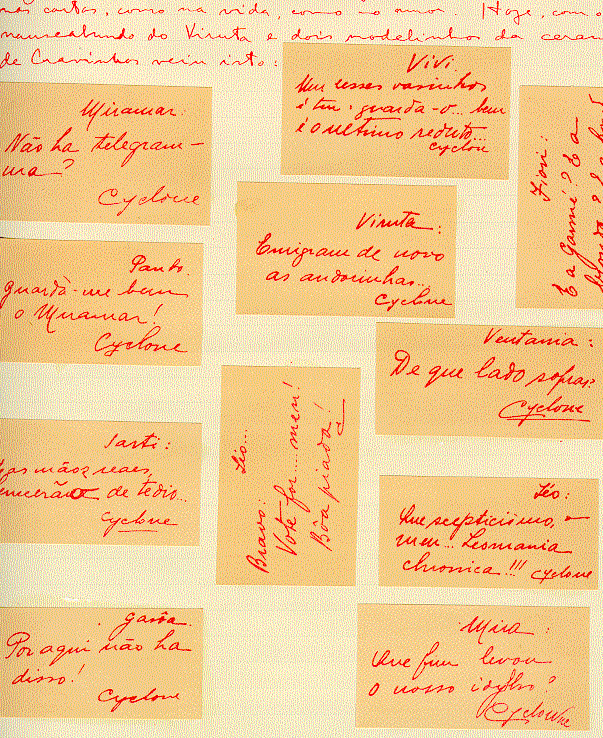 nas cartas, como na vida, como no amor. Hoje, com o
nauseabundo do Viruta e dois modelinhos da ceram
de Cravinhos veiu isto:
Vivi
Um desses vasinhos
é teu. guarda-o... bem
é o ultimo reducto...
Cyclone
Miramar:
Não ha telegram-
ma?
Cyclone
Fiori:
E a
Viruta:
Emigram de novo
as andorinhas...
Cyclone
guarda-me bem
o Miramar!
Cyclone
Ventania:
De que lado sopras?
Cyclone
Sarti:
as mãos reaes,
de tedio...
Cyclone
Bravo: Léo...
Vote for... meu!
Bôa piada!
Léo:
Que scepticismo,
meu... Leomania
chronica!!!
Cyclone
garôa
Por aqui não ha
disso!
Cyclone
Mira:
Que fim levou
o nosso idyllio?
Cyclone